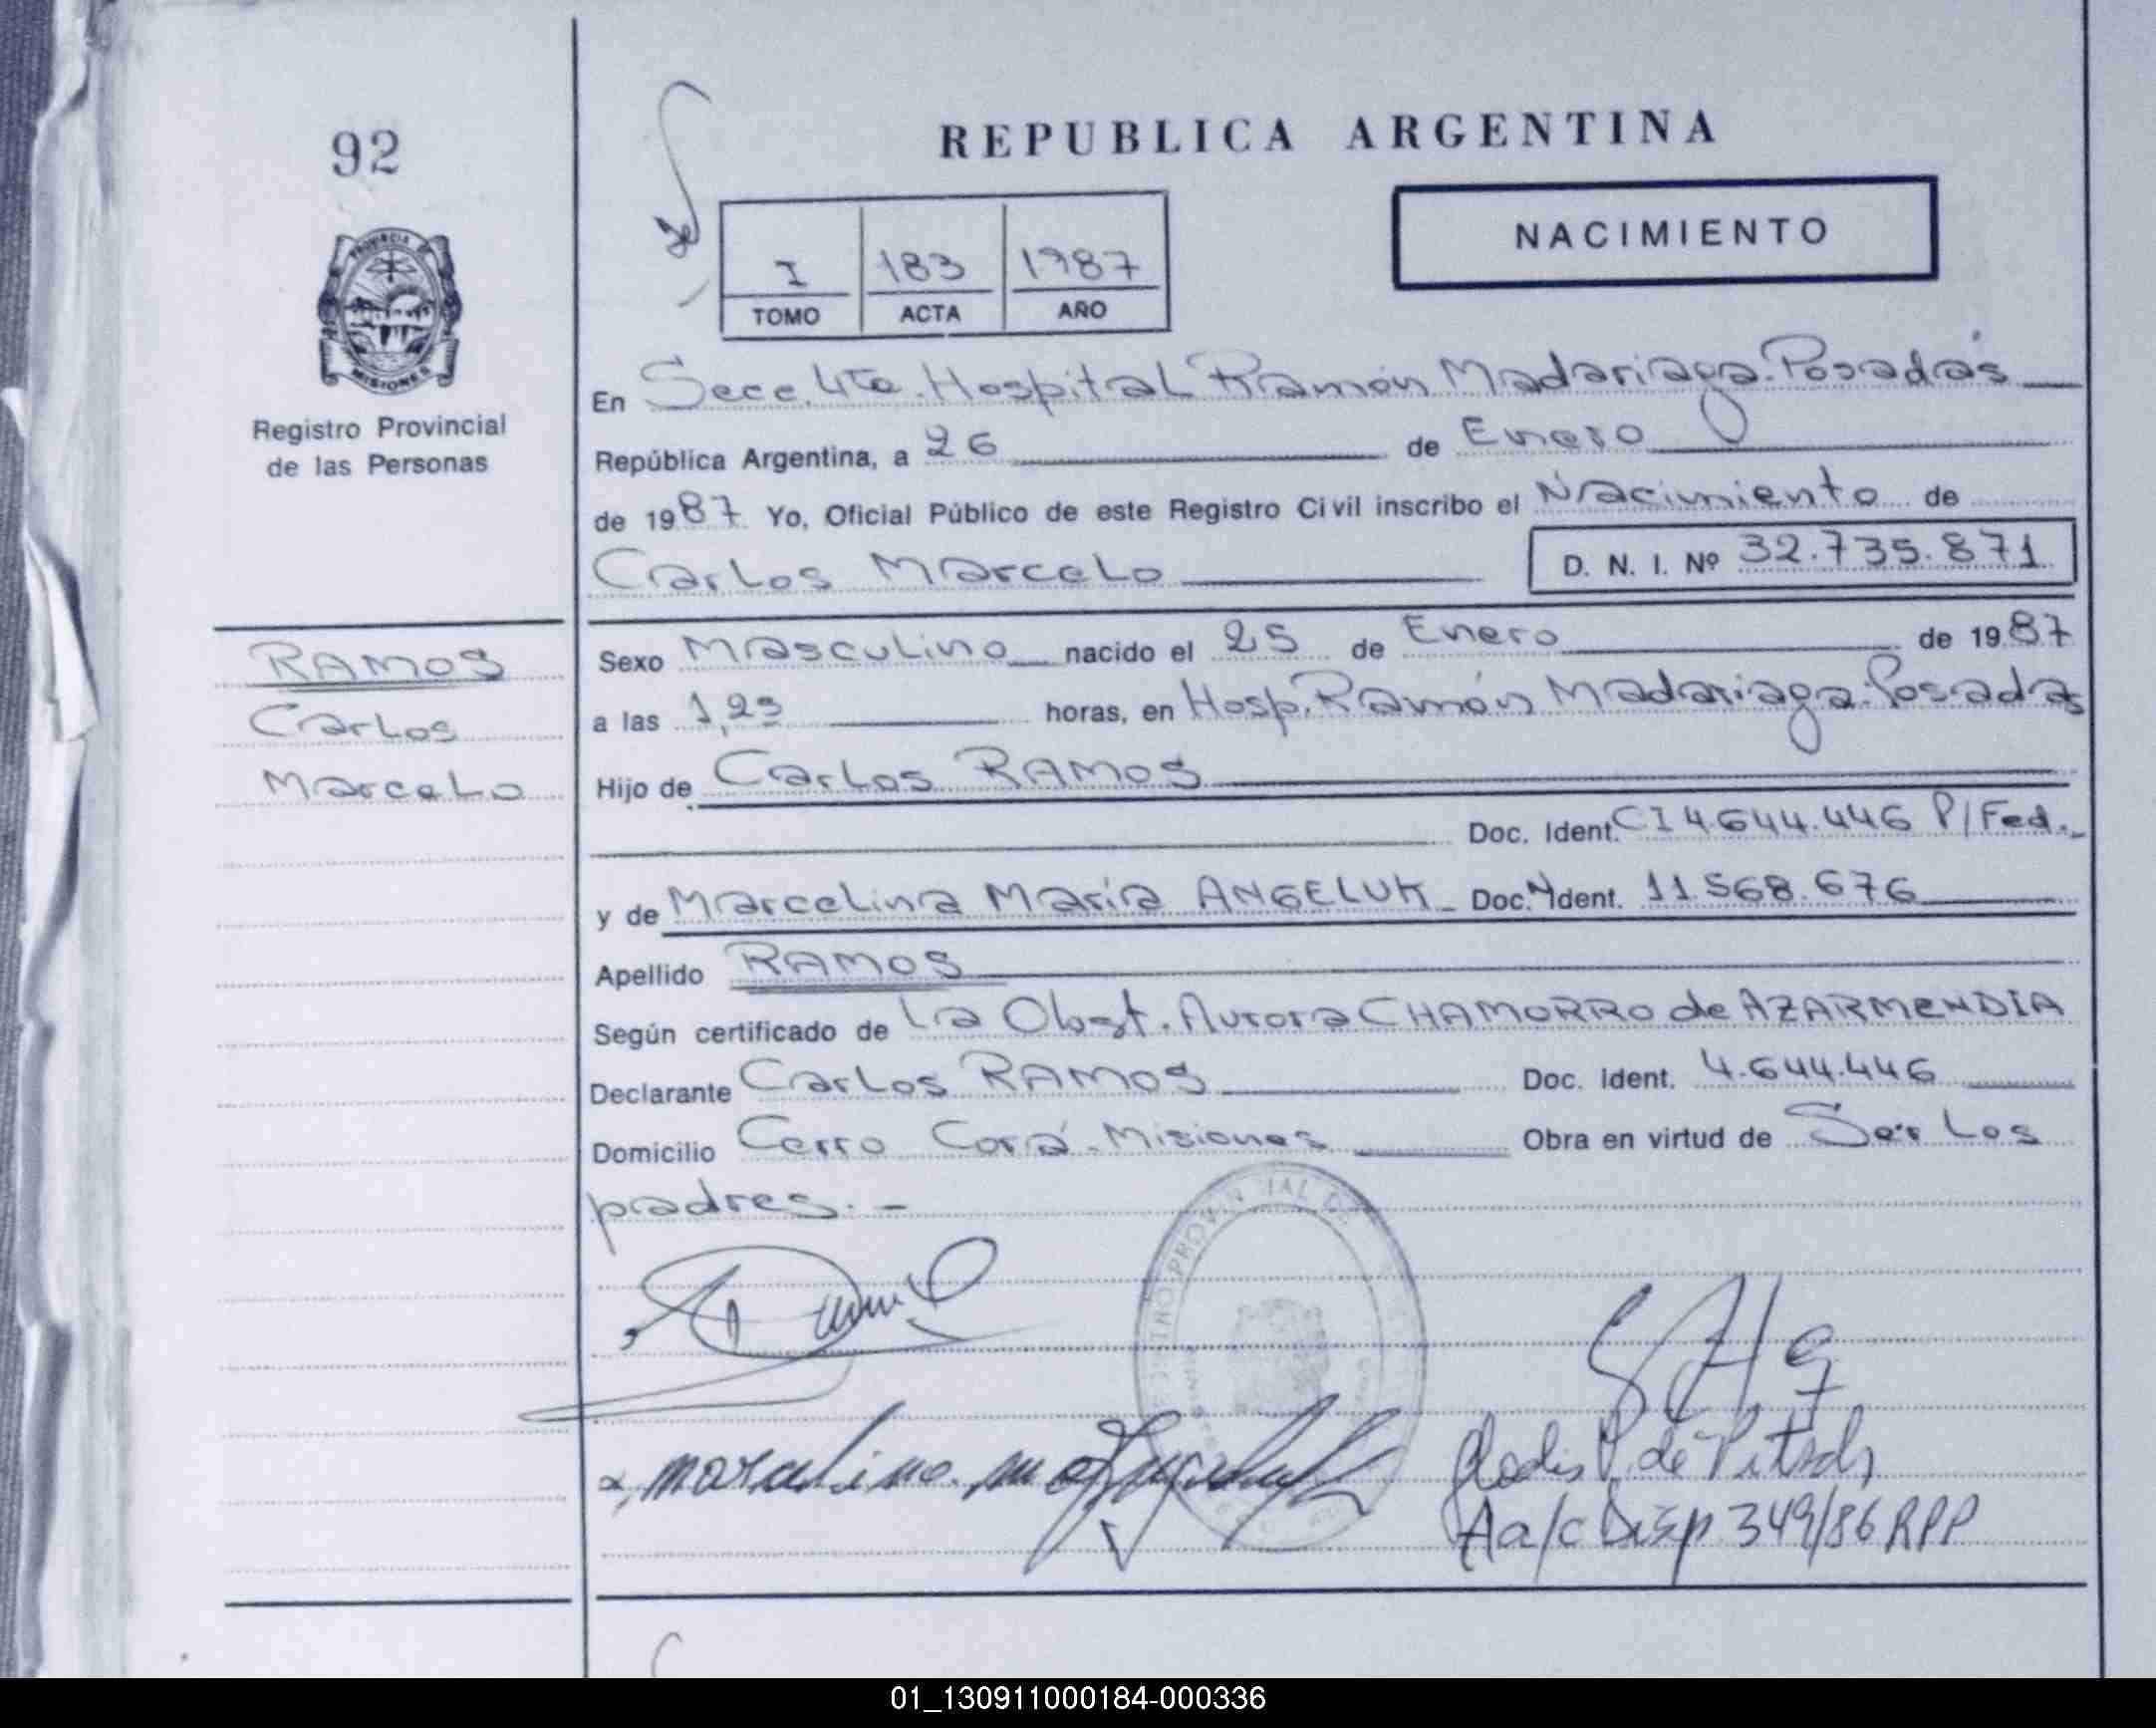 92
PROVINCIA DE
MISIONES
Registro Provincial
de las Personas
RAMOS
Carlos
Marcelo
REPUBLICA ARGENTINA
NACIMIENTO
I 183 1987
TOMO ACTA AÑO
En Secc. 4ta. Hospital Ramón Madariaga. Posadas
República Argentina, a 26 de Enero
de 1987 Yo, Oficial Público de este Registro Civil inscribo el Nacimiento de
Carlos Marcelo D. N. I. Nº 32.735.871
Sexo Masculino nacido el 25 de Enero de 1987
a las 1,23 horas, en Hosp. Ramón Madariaga. Posadas
Hijo de Carlos RAMOS
Doc. Ident. CI 4.644.446 P/Fed.
y de Marcelina María ANGELUK Doc. Ident. 11.568.676
Apellido RAMOS
Según certificado de La Obst. Aurora CHAMORRO de AZARMENDIA
Declarante Carlos RAMOS Doc. Ident. 4.644.446
Domicilio Cerro Corá - Misiones Obra en virtud de Ser Los
padres. -
REGISTRO PROVINCIAL DE
de
A a/c Disp 349/86 RPP
01_130911000184-000336